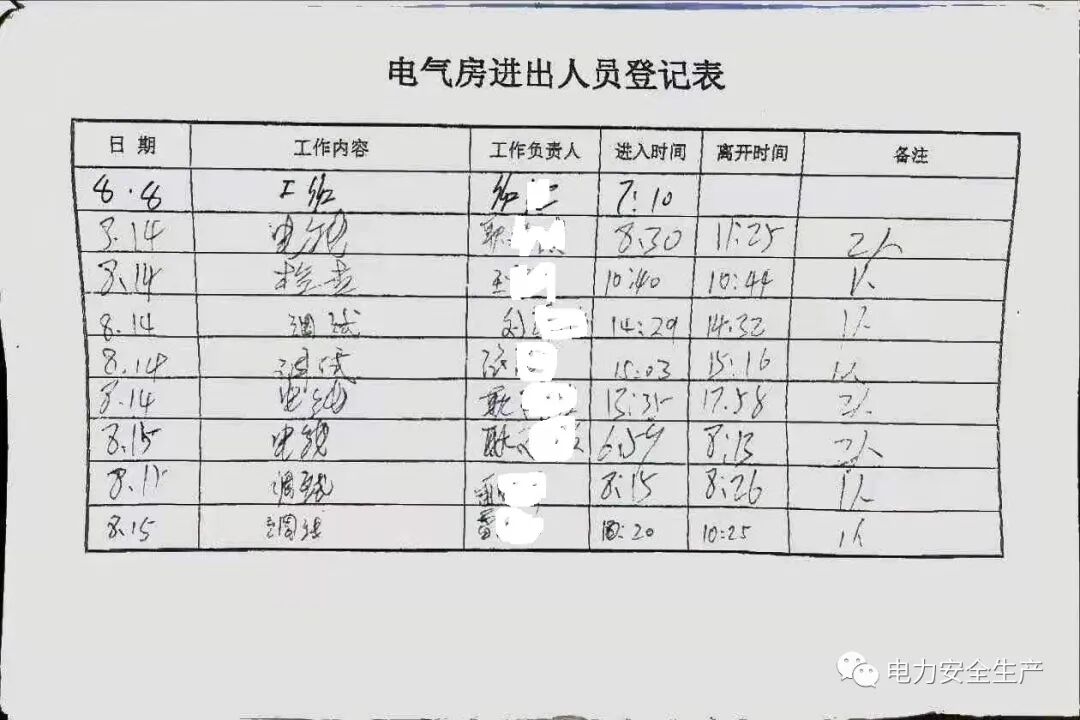 电气房进出人员登记表
日期 工作内容 工作负责人 进入时间 离开时间 备注
8.8 7:10
8.14 电缆 8:30 11:25 2人
8.14 检查 10:40 10:44 1人
8.14 调试 刘 14:29 14:32 1人
8.14 调试 15:03 15:16 1人
8.14 电缆 13:35 17:58 2人
8.15 电缆 6:59 8:13 2人
8.15 调试 8:15 8:26 1人
8.15 调试 10:20 10:25 1人
电力安全生产